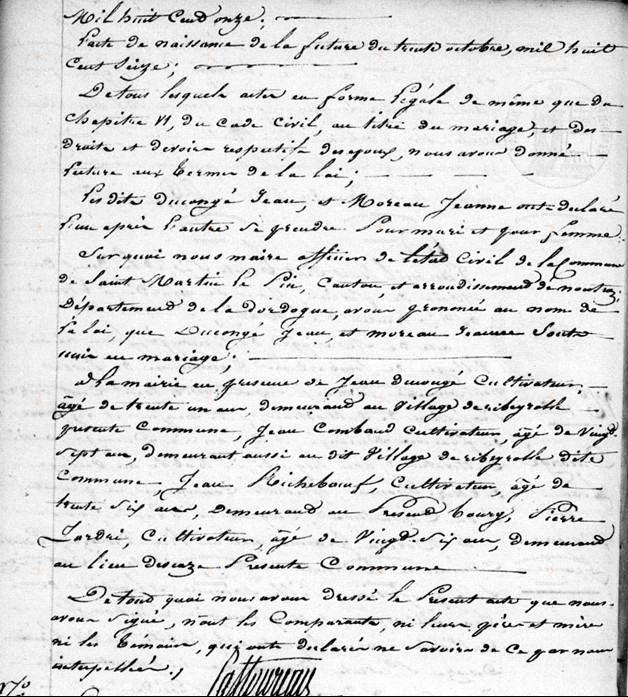 Mil huit Cent onze;
L'acte de naissance de la future du trente octobre, mil huit
Cent Seize;
De tous lesquels actes en forme légale de même que du
chapitre VI, du Code Civil, au titre du mariage, et des
droits et devoirs respectifs des époux, nous avons donné
lecture aux termes de la loi;
Lesdits Ducongé Jean, et Moreau Jeanne ont déclaré
l'un après l'autre se prendre pour mari et pour femme
Sur quoi nous maire officier de l'état Civil de la Commune
de Saint Martin le Pin, Canton, et arrondissement de nontron,
Département de la dordogne, avons prononcé au nom de
la loi, que Ducongé Jean, et moreau Jeanne Sont
unis en mariage;
A la mairie en présence de Jean ducongé Cultivateur,
âgé de trente un ans, demeurand au Village de ribeyrolle
présente Commune, Jean Combaud Cultivateur, âgé de Vingt-
sept ans, demeurant aussi au dit Village de ribeyrolle dite
Commune Jean Richebœuf, Cultivateur, âgé de
trente Six ans, demeurand au Présend bourg, Pierre
Jardri, Cultivateur, âgé de Vingt-Six ans, demeurand
au lieu Présente Commune
De toud quoi nous avons dressé le Présent acte que nous
avons Signé, nont les Comparants, ni leurs père et mère
ni les témoins, qui ont déclaré ne Savoir de ce par nous
interpellés.